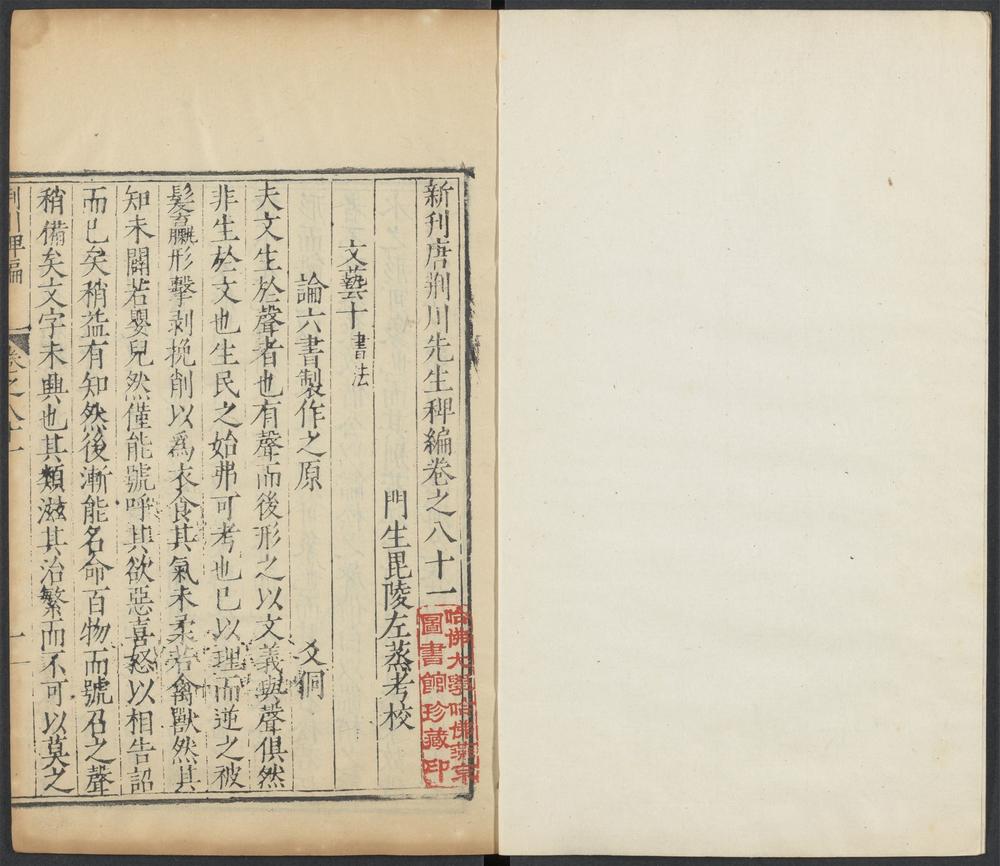 新刊唐荆川先生稗編卷之八十一
門生毘陵左烝考校
文藝十書法
論六書製作之原
夫文生於聲者也有聲而後形之以文義與聲俱然
非生於文也生民之始弗可考也已以理而逆之被
髮羸形擊剥挽削以爲衣食其氣未柔若禽獸然其
知未闢若嬰兒然僅能號呼其欲惡喜怒以相告詔
而已矣稍益有知然後漸能名命百物而號召之聲
稍備矣文字未興也其類滋其治繁而不可以莫之
卷之八十一
哈佛大學哈佛燕京
圖書館珍藏印